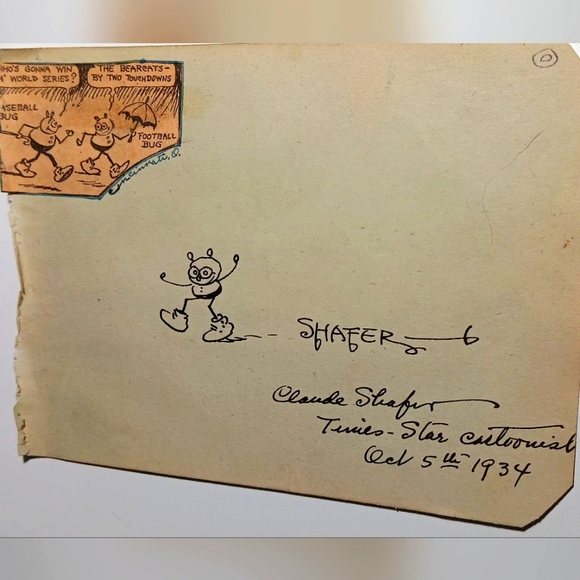 WHO'S GONNA WIN
TH' WORLD SERIES?
THE BEARCATS-
BY TWO TOUCHDOWNS
BASEBALL
BUG
FOOTBALL
BUG
Cincinnati, O.
SHAFER
Claude Shafer
Times-Star cartoonist
Oct 5th 1934